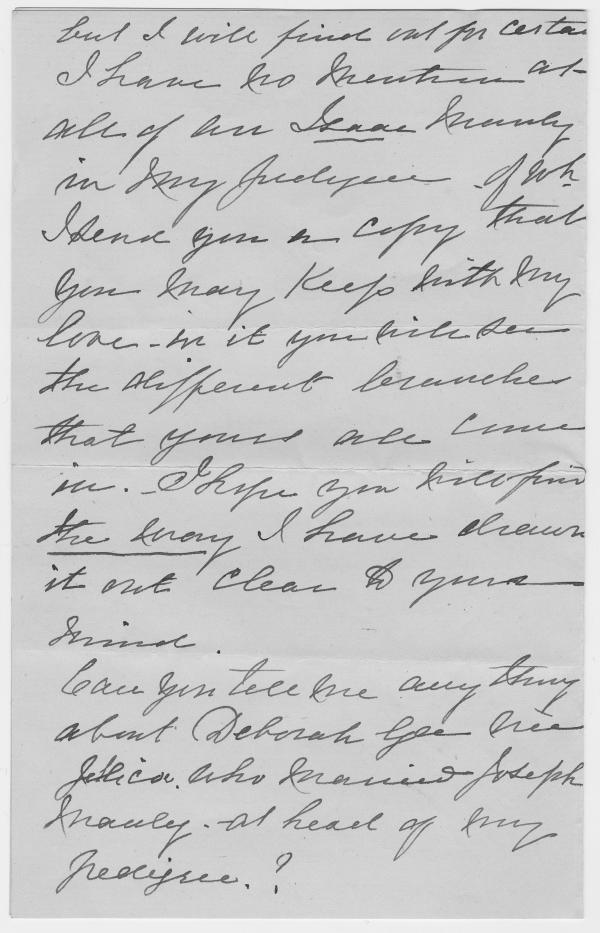 but I will find out for certain
I have no mention at
all of an Isaac Manly
in my pedigree - of wh.
I send you a copy that
you may keep with my
love - in it you will see
the different branches
that yours all come
in. - I hope you will find
the way I have drawn
it out clear to your
mind.
Can you tell me anything
about Deborah Gee née
who married Joseph
Manly - at head of my
pedigree.?